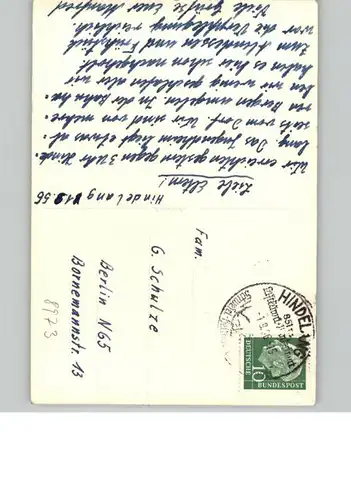 Hindelang 1.9.56
Liebe Eltern!
Wir erreichten gestern gegen 3 Uhr Hinde-
lang. Das Jugendheim liegt etwas ab-
seits vom Dorf. Wir sind von mehre-
ren Bergen umgeben. In der Bahn ha-
ben wir wenig geschlafen aber wir
haben es hier schon nachgeholt.
Zum Abendessen und Frühstück
war die Verpflegung reichlich.
Viele Grüße Euer Manfred
Fam.
G. Schulze
Berlin N65
Bornemannstr. 13
8973
HINDELANG
10
DEUTSCHE
BUNDESPOST